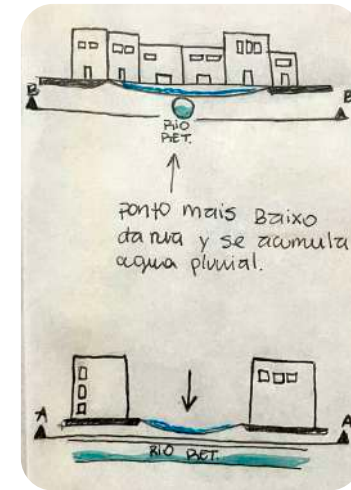 B B
RIO
RET.
ponto mais Baixo
da rua y se acumula
agua pluvial.
A A
RIO RET.